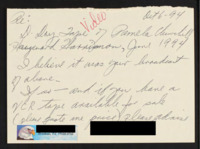 Re: Video Oct 6-94
D Day Tape of Pamela Churchill
Hayward Harriman, June 1994
I believe it was your broadcast
of above.
If so - and if you have a
VCR tape available for sale
please quote me price, please advise